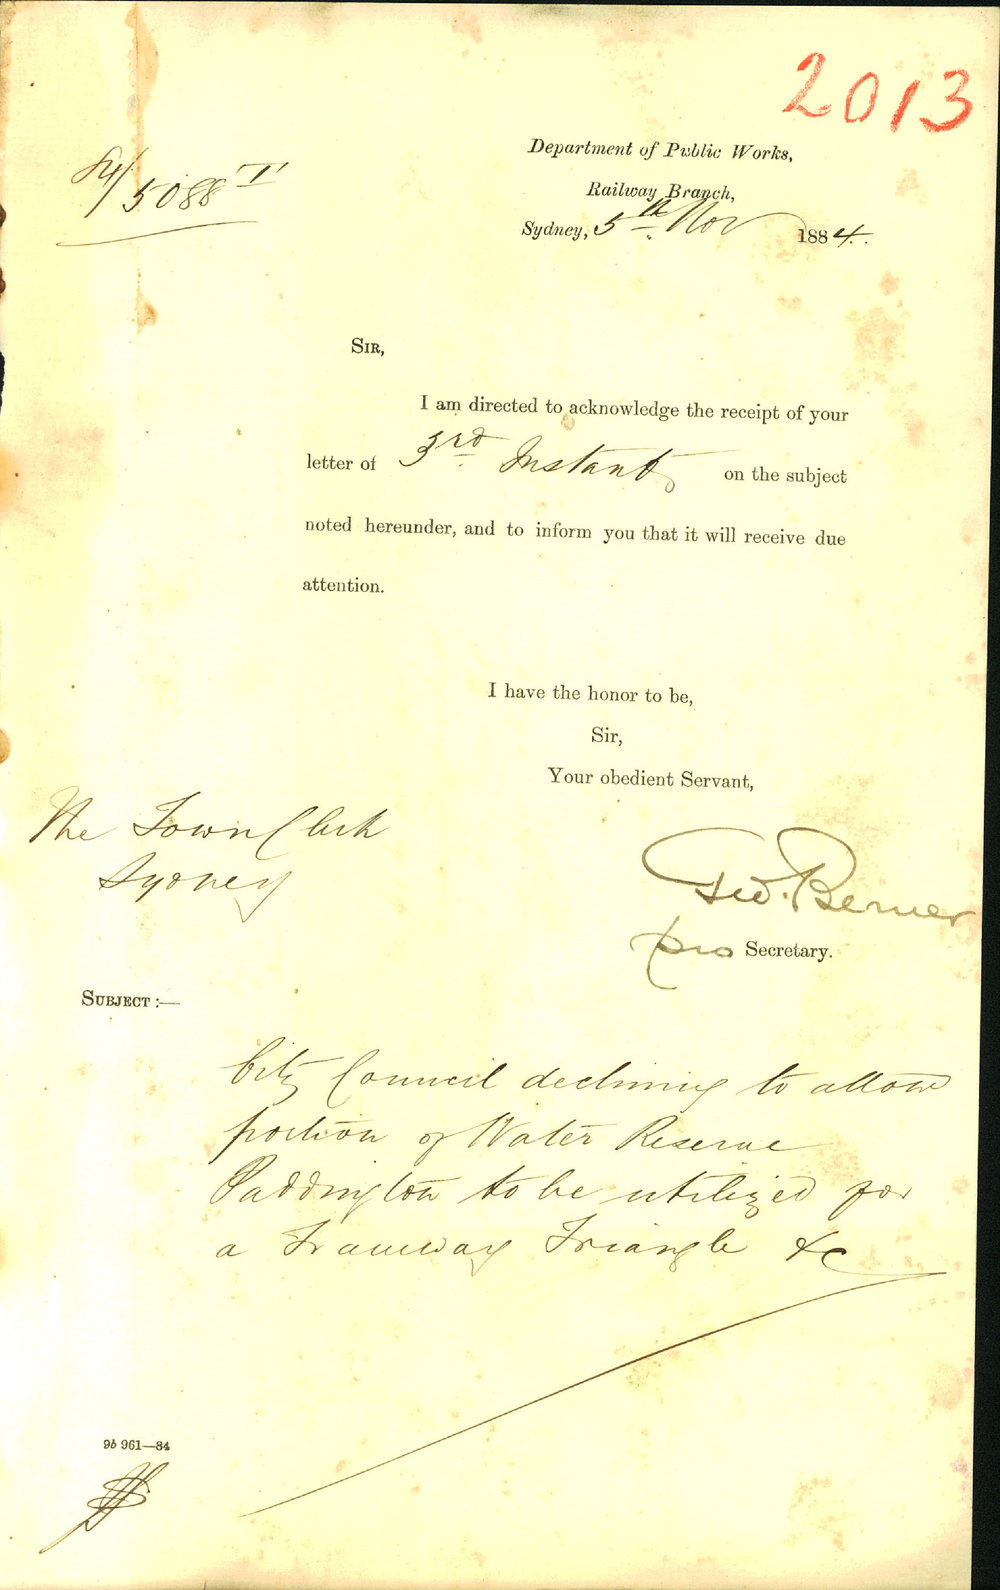 2013
84/5088 T
Department of Public Works,
Railway Branch,
Sydney, 5th Nov 1884.
SIR,
I am directed to acknowledge the receipt of your
letter of 3rd Instant, on the subject
noted hereunder, and to inform you that it will receive due
attention.
I have the honor to be,
Sir,
Your obedient Servant,
The Town Clerk
Sydney
Geo. Berner
pro Secretary.
SUBJECT :—
City Council declining to allow
portion of Water Reserve
Paddington to be utilized for
a Tramway Triangle &c
9b 961—84